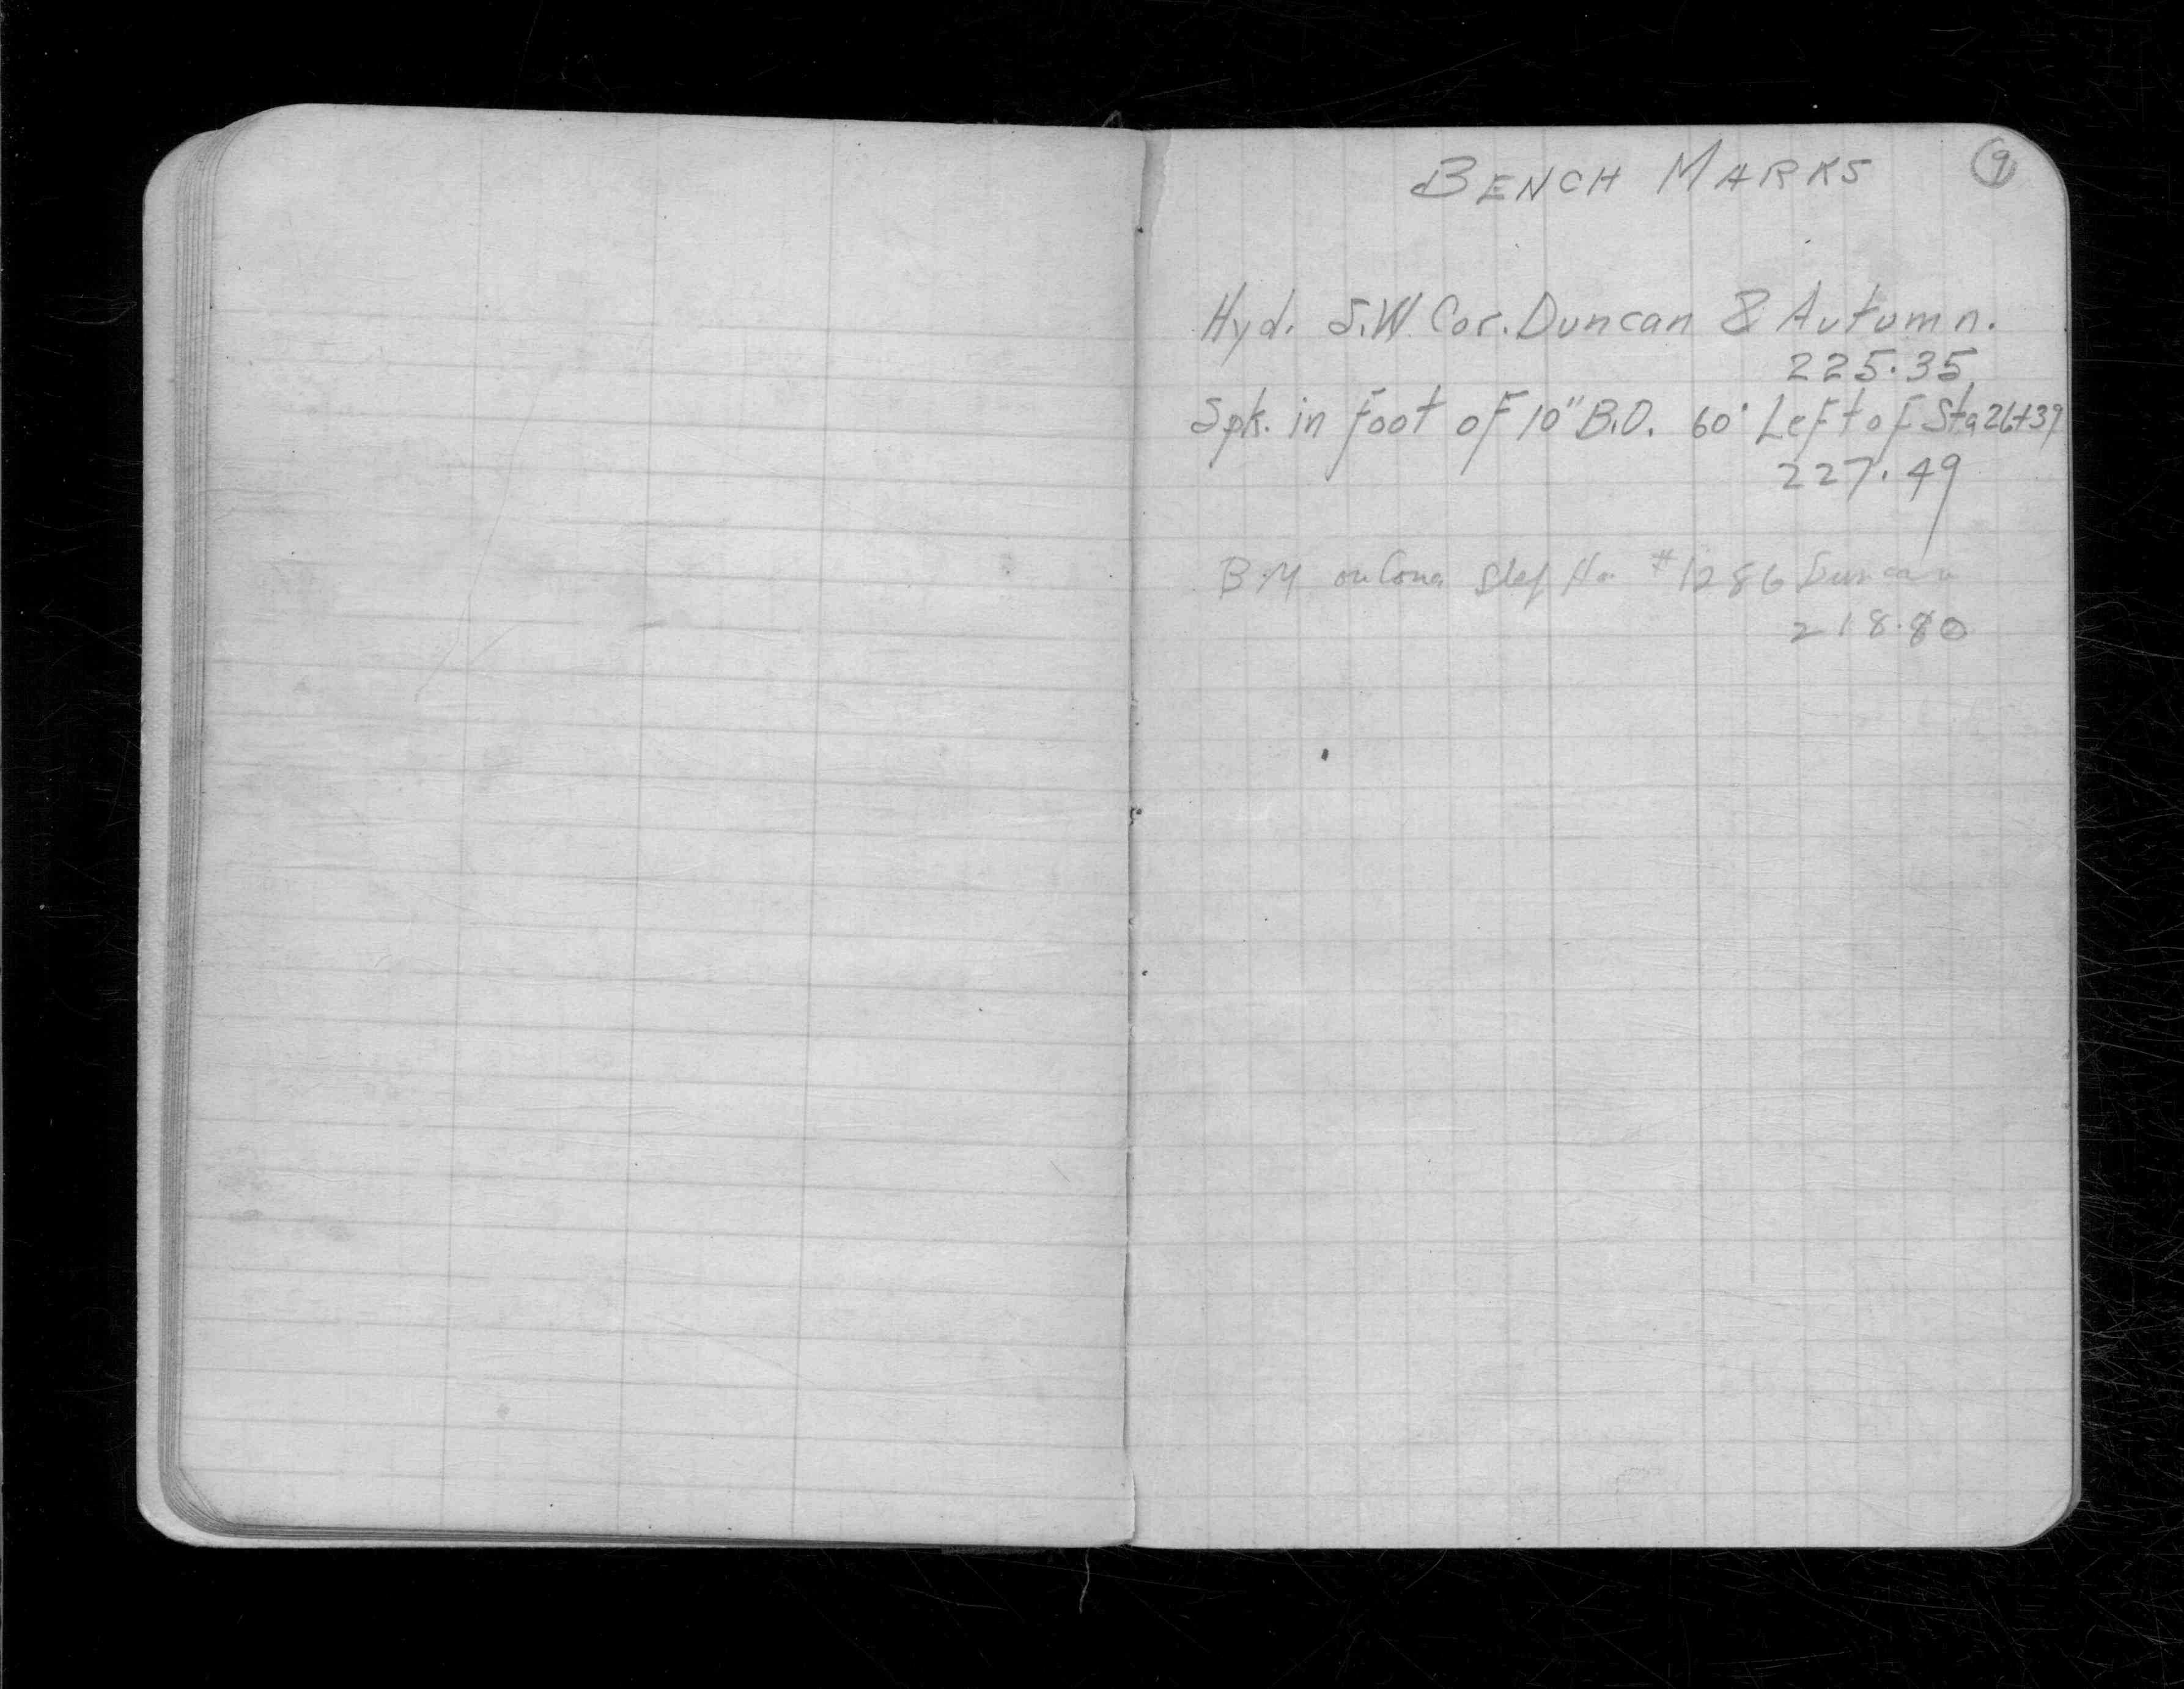 BENCH MARKS 9
Hyd. S.W. Cor. Duncan & Autumn.
225.35
Spk. in foot of 10" B.O. 60' Left of Sta 26+39
227.49
B.M on Conc Step Ho. #1286 Duncan
218.80